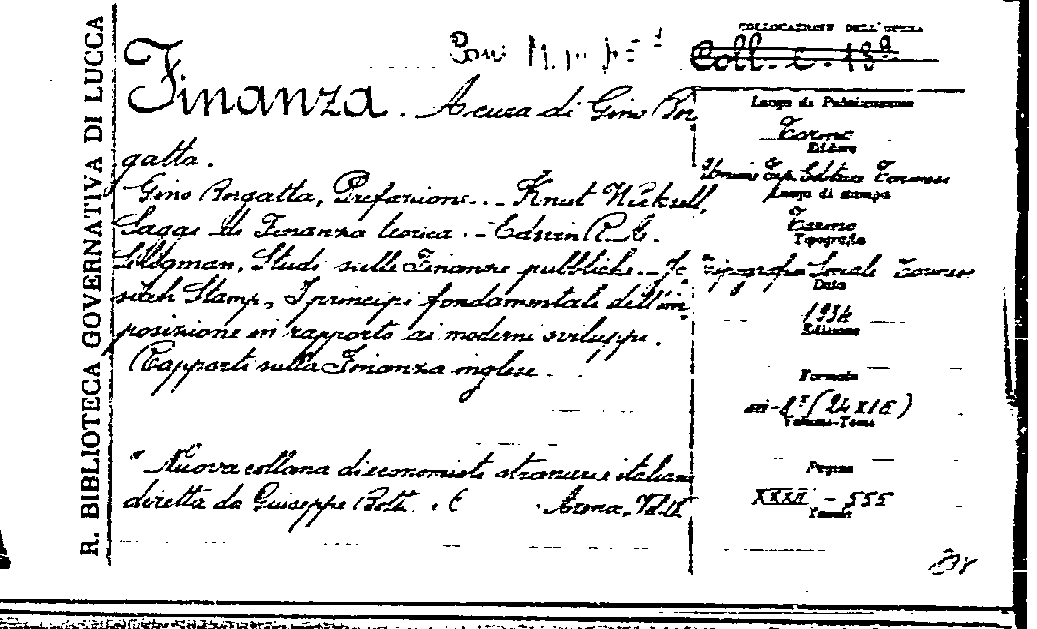 R. BIBLIOTECA GOVERNATIVA DI LUCCA
COLLOCAZIONE DELL'OPERA
Coll. C. 13
Finanza. A cura di Gino Bor
gatta.
Gino Borgatta, Prefazione. - Knut Wicksell,
Saggi di Finanza teorica. - Edwin R. A.
Seligman, Studi sulle Finanze pubbliche. - Jo
siah Stamp, I principi fondamentali dell'im
posizione in rapporto ai moderni sviluppi.
(Rapporti sulla Finanza inglese.
"Nuova collana di economisti stranieri e italiani
diretta da Giuseppe Bott. e Arena, Vol. IX
Luogo di Pubblicazione
Torino
Editore
Unione Tip. Editrice Torinese
Luogo di stampa
Torino
Tipografia
Tipografia Sociale Torinese
Data
1934
Edizione
Formato
in-8° (24x16)
Volume-Tomo
Pagine
XXXII - 555
Tavole